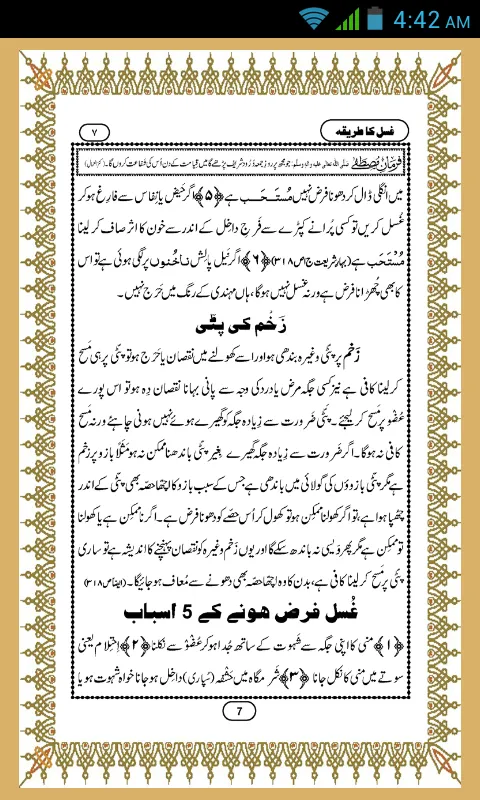 4:42 AM
غسل کا طریقہ
۷
فرمانِ مصطفےٰ صلی اللہ تعالیٰ علیہ والہٖ وسلم: جو مجھ پر روزِ جمعہ دُرُود شریف پڑھے گا میں قِیامت کے دن اُس کی شَفاعت کروں گا۔ (کنزالعمال)
میں انگلی ڈال کر دھونا فرض نہیں مُسْتَحَب ہے ﴿۵﴾ اگر حَیض یا نِفاس سے فارِغ ہو کر
غُسل کریں تو کسی پُرانے کپڑے سے فَرجِ داخِل کے اندر سے خون کا اثر صاف کر لینا
مُسْتَحَب ہے (بہارِ شریعت ج۱ص۳۱۸) ﴿۶﴾ اگر نَیل پالِش ناخُنوں پر لگی ہوئی ہے تو اس
کا بھی چُھڑانا فرض ہے ورنہ غسل نہیں ہوگا، ہاں مہندی کے رنگ میں حَرَج نہیں۔
زَخْم کی پٹی
زَخْم پر پٹّی وغیرہ بندھی ہو اور اسے کھولنے میں نقصان یا حَرَج ہو تو پٹّی پر ہی مَسح
کر لینا کافی ہے نیز کسی جگہ مرض یا درد کی وجہ سے پانی بہانا نقصان دِہ ہو تو اس پورے
عُضْو پر مَسح کر لیجئے۔ پٹّی ضَرورت سے زِیادہ جگہ کو گھیرے ہوئے نہیں ہونی چاہئے ورنہ مَسح
کافی نہ ہوگا۔ اگر ضَرورت سے زِیادہ جگہ گھیرے بغیر پٹّی باندھنا ممکن نہ ہو مَثَلًا بازو پر زخْم
ہے مگر پٹّی بازوؤں کی گولائی میں باندھی ہے جس کے سبب بازو کا اچّھا حصّہ بھی پٹّی کے اندر
چُھپا ہوا ہے، تو اگر کھولنا ممکِن ہو تو کھول کر اُس حصّے کو دھونا فرض ہے۔ اگر ناممکِن ہے یا کھولنا
تو ممکِن ہے مگر پھر وَیسی نہ باندھ سکے گا اور یوں زَخْم وغیرہ کو نقصان پہنچنے کا اندیشہ ہے تو ساری
پٹّی پر مَسح کر لینا کافی ہے، بدن کا وہ اچّھا حصّہ بھی دھونے سے مُعاف ہو جائیگا۔ (ایضاً ص۳۱۸)
غُسل فرض ہونے کے 5 اسباب
﴿۱﴾ منی کا اپنی جگہ سے شَہوت کے ساتھ جُدا ہو کر عُضْوْ سے نکلنا ﴿۲﴾ اِحتِلام یعنی
سوتے میں منی کا نکل جانا ﴿۳﴾ شَرْمگاہ میں حَشْفہ (سُپاری) داخِل ہو جانا خواہ شَہوت ہو یا
7